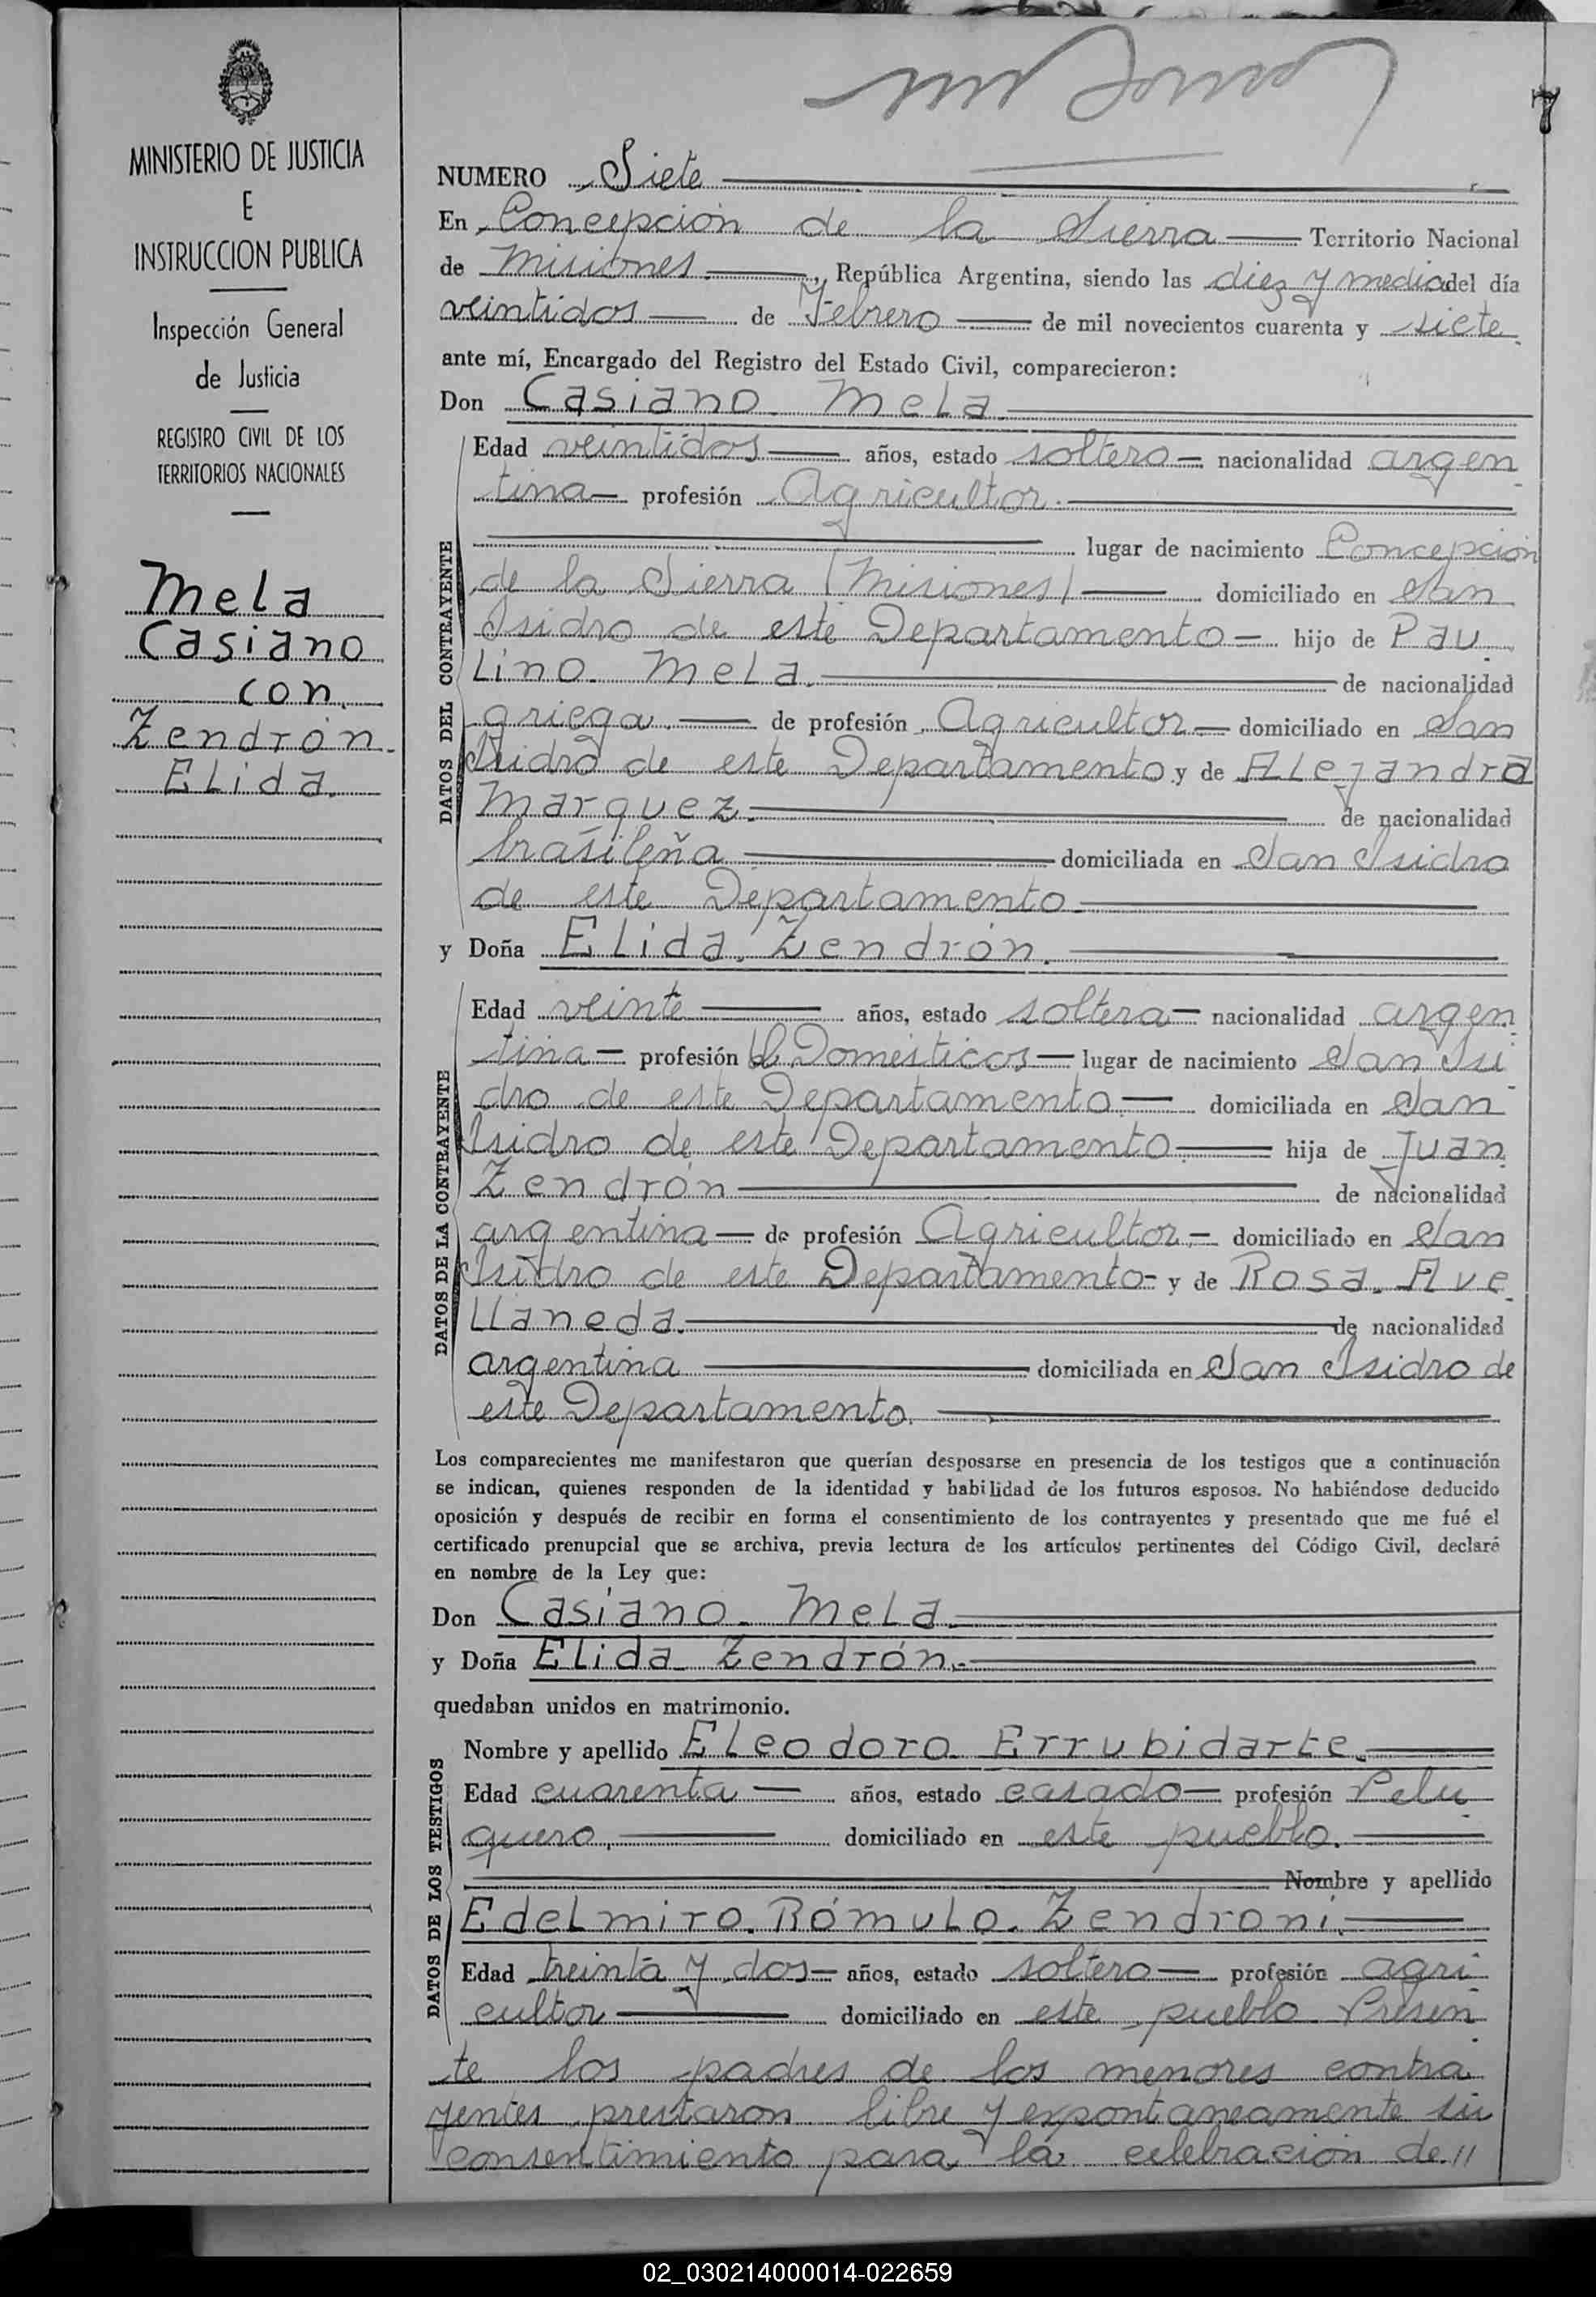 7
MINISTERIO DE JUSTICIA
E
INSTRUCCION PUBLICA
Inspección General
de Justicia
REGISTRO CIVIL DE LOS
TERRITORIOS NACIONALES
Mela
Casiano
con
Zendrón
Elida.
NUMERO Siete
En Concepción de la Sierra Territorio Nacional
de Misiones, República Argentina, siendo las diez y media del día
veintidos de Febrero de mil novecientos cuarenta y siete
ante mí, Encargado del Registro del Estado Civil, comparecieron:
Don Casiano Mela
DATOS DEL CONTRAYENTE
Edad veintidos años, estado soltero nacionalidad argen
tina profesión Agricultor.
lugar de nacimiento Concepción
de la Sierra (Misiones) domiciliado en San
Isidro de este Departamento hijo de Pau
lino Mela. de nacionalidad
griega. de profesión Agricultor domiciliado en San
Isidro de este Departamento y de Alejandra
Marquez. de nacionalidad
brasileña domiciliada en San Isidro
de este Departamento
y Doña Elida Zendrón.
DATOS DE LA CONTRAYENTE
Edad veinte años, estado soltera nacionalidad argen
tina profesión Domésticos lugar de nacimiento San Isi
dro de este Departamento domiciliada en San
Isidro de este Departamento hija de Juan
Zendrón de nacionalidad
argentina de profesión Agricultor domiciliado en San
Isidro de este Departamento y de Rosa Ave
llaneda. de nacionalidad
argentina domiciliada en San Isidro de
este Departamento.
Los comparecientes me manifestaron que querían desposarse en presencia de los testigos que a continuación
se indican, quienes responden de la identidad y habilidad de los futuros esposos. No habiéndose deducido
oposición y después de recibir en forma el consentimiento de los contrayentes y presentado que me fué el
certificado prenupcial que se archiva, previa lectura de los artículos pertinentes del Código Civil, declaré
en nombre de la Ley que:
Don Casiano Mela
y Doña Elida Zendrón.
quedaban unidos en matrimonio.
DATOS DE LOS TESTIGOS
Nombre y apellido Eleodoro Errubidarte.
Edad cuarenta años, estado casado profesión Pelu
quero, domiciliado en este pueblo.
Nombre y apellido
Edelmiro Rómulo Zendroni.
Edad treinta y dos años, estado soltero profesión agri
cultor domiciliado en este pueblo Presen
te los padres de los menores contra
yentes prestaron libre y expontaneamente su
consentimiento para la celebración de //
02_030214000014-022659